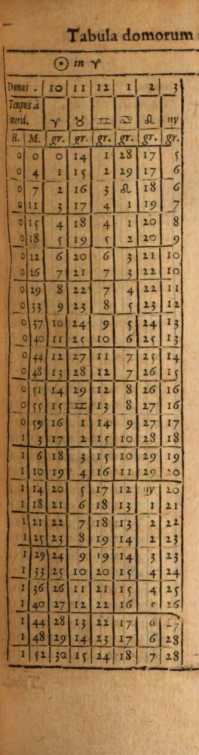 Tabula domorum
☉ in ♈
Domus . 10 11 12 1 2 3
Tempus à ♈ ♉ ♊ ♋ ♌ ♍
merid.
H. M. gr. gr. gr. gr. gr. gr.
0 0 0 14 1 28 17 5
0 4 1 15 2 29 17 6
0 7 2 16 3 ♌ 18 6
0 11 3 17 4 1 19 7
0 15 4 18 4 1 20 8
0 18 5 19 5 2 20 9
0 22 6 20 6 3 21 10
0 26 7 21 7 3 22 10
0 29 8 22 7 4 22 11
0 33 9 23 8 5 23 12
0 37 10 24 9 5 24 13
0 40 11 25 10 6 25 13
0 44 12 27 11 7 25 14
0 48 13 28 12 7 26 15
0 51 14 29 12 8 26 16
0 55 15 ♊ 13 8 27 16
0 59 16 1 14 9 27 17
1 3 17 2 15 10 28 18
1 6 18 3 15 10 29 19
1 10 19 4 16 11 29 20
1 14 20 5 17 12 ♍ 20
1 18 21 6 18 13 1 21
1 21 22 7 18 13 2 22
1 25 23 8 19 14 2 23
1 29 24 9 19 14 3 23
1 33 25 10 20 15 4 24
1 36 26 11 21 15 4 25
1 40 27 12 22 16 5 26
1 44 28 13 22 17 6 27
1 48 29 14 23 17 6 28
1 52 30 15 24 18 7 28